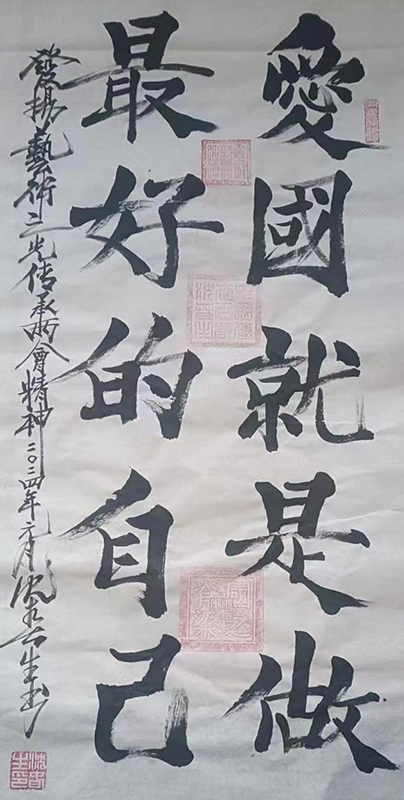 愛國就是做
最好的自己
發揚藝術之光传承两會精神二〇二四年元月沈生书